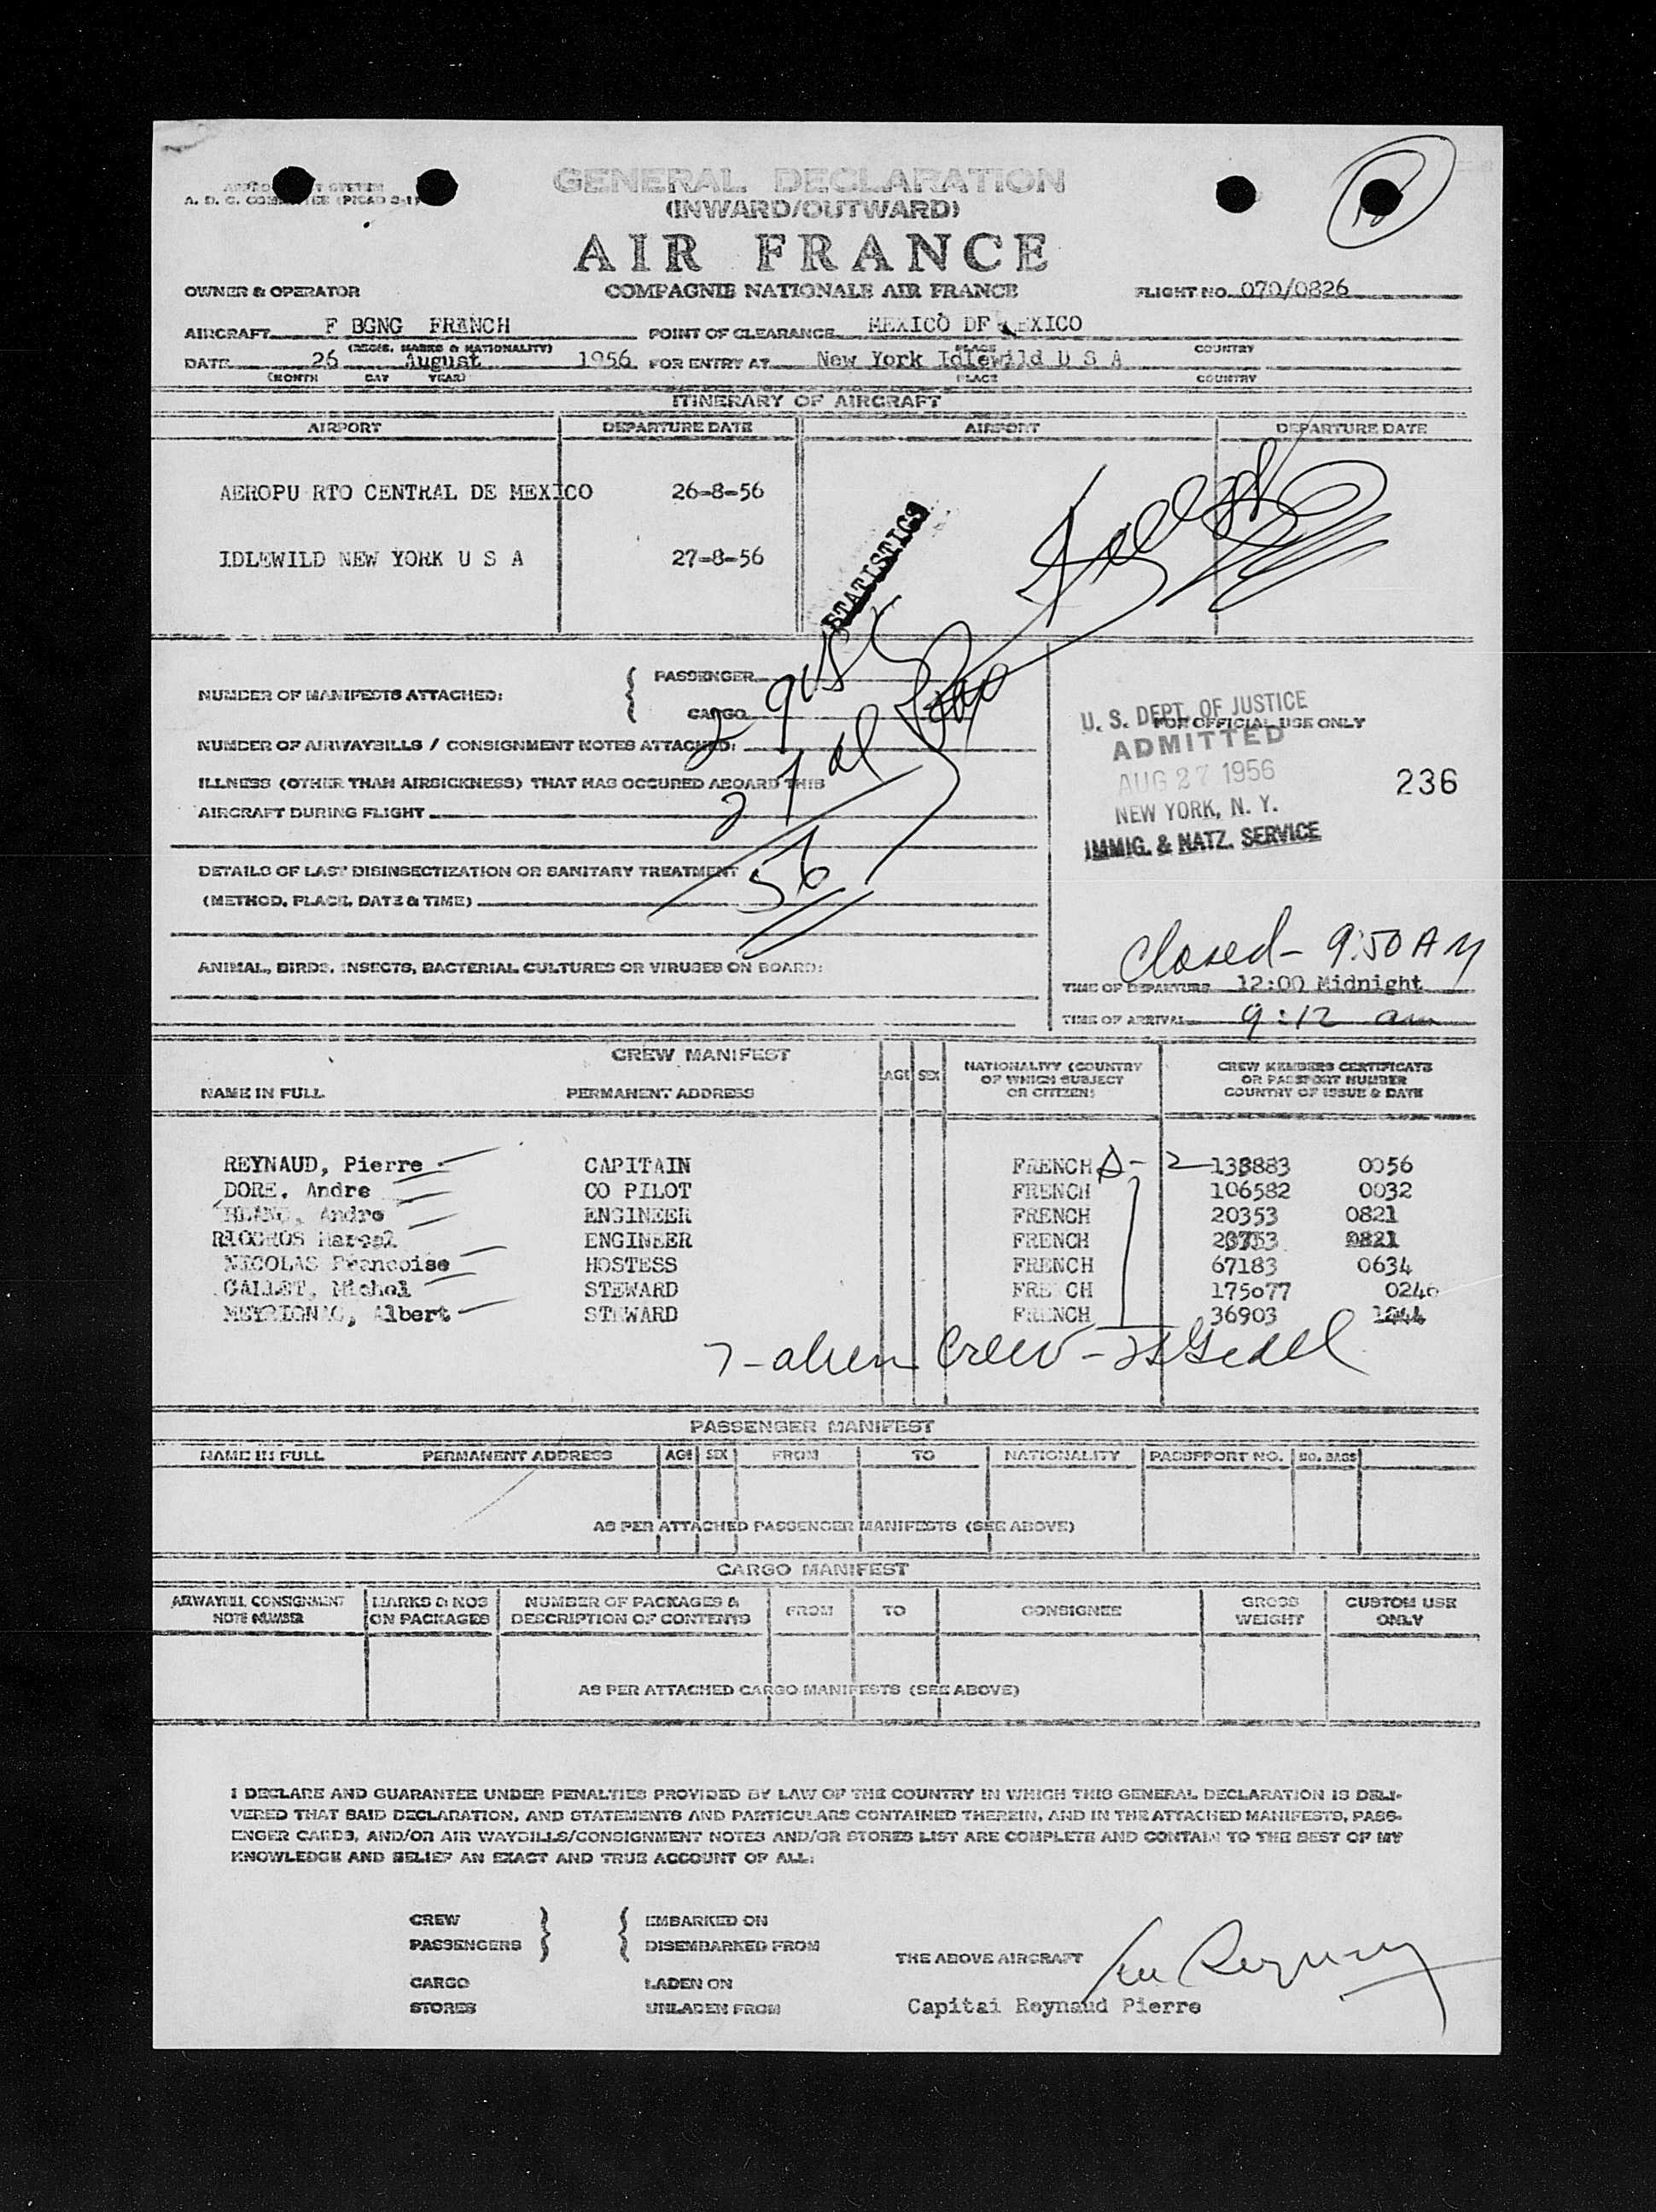 GENERAL DECLARATION
(INWARD/OUTWARD)
AIR FRANCE
COMPAGNIE NATIONALE AIR FRANCE
OWNER & OPERATOR
FLIGHT NO. 070/0826
AIRCRAFT F BGNG FRENCH
(REGIS. MARKS & NATIONALITY)
POINT OF CLEARANCE MEXICO DF MEXICO
PLACE COUNTRY
DATE 26 August 1956
(MONTH DAY YEAR)
FOR ENTRY AT New York Idlewild U S A
PLACE COUNTRY
ITINERARY OF AIRCRAFT
AIRPORT DEPARTURE DATE AIRPORT DEPARTURE DATE
AEROPU RTO CENTRAL DE MEXICO 26-8-56
IDLEWILD NEW YORK U S A 27-8-56
STATISTICS
NUMBER OF MANIFESTS ATTACHED:
PASSENGER
CARGO
NUMBER OF AIRWAYBILLS / CONSIGNMENT NOTES ATTACHED:
ILLNESS (OTHER THAN AIRSICKNESS) THAT HAS OCCURED ABOARD THIS
AIRCRAFT DURING FLIGHT
56
DETAILS OF LAST DISINSECTIZATION OR SANITARY TREATMENT
(METHOD, PLACE, DATE & TIME)
ANIMAL, BIRDS, INSECTS, BACTERIAL CULTURES OR VIRUSES ON BOARD:
FOR OFFICIAL USE ONLY
U. S. DEPT. OF JUSTICE
ADMITTED
AUG 27 1956
NEW YORK, N. Y.
IMMIG. & NATZ. SERVICE
236
Closed - 9:50 AM
TIME OF DEPARTURE 12:00 Midnight
TIME OF ARRIVAL 9:12 am
CREW MANIFEST
NAME IN FULL PERMANENT ADDRESS AGE SEX
NATIONALITY (COUNTRY
OF WHICH SUBJECT
OR CITIZEN)
CREW MEMBERS CERTIFICATE
OR PASSPORT NUMBER
COUNTRY OF ISSUE & DATE
REYNAUD, Pierre CAPITAIN FRENCH D-2 138883 0056
DORE, Andre CO PILOT FRENCH 106582 0032
BLANC, Andre ENGINEER FRENCH 20353 0821
Marcel ENGINEER FRENCH 0821
NICOLAS Francoise HOSTESS FRENCH 67183 0634
GALLET, Michel STEWARD FRE CH 175077 0246
MEYRIGNAC, Albert STEWARD FRENCH 36903
7 - alien Crew -
PASSENGER MANIFEST
NAME IN FULL PERMANENT ADDRESS AGE SEX FROM TO NATIONALITY PASSPPORT NO. NO. BAGS
AS PER ATTACHED PASSENGER MANIFESTS (SEE ABOVE)
CARGO MANIFEST
AIRWAYBILL CONSIGNMENT
NOTE NUMBER
MARKS & NOS
ON PACKAGES
NUMBER OF PACKAGES &
DESCRIPTION OF CONTENTS
FROM TO CONSIGNEE
GROSS
WEIGHT
CUSTOM USE
ONLY
AS PER ATTACHED CARGO MANIFESTS (SEE ABOVE)
I DECLARE AND GUARANTEE UNDER PENALTIES PROVIDED BY LAW OF THE COUNTRY IN WHICH THIS GENERAL DECLARATION IS DELI-
VERED THAT SAID DECLARATION, AND STATEMENTS AND PARTICULARS CONTAINED THEREIN, AND IN THE ATTACHED MANIFESTS, PASS-
ENGER CARDS, AND/OR AIR WAYBILLS/CONSIGNMENT NOTES AND/OR STORES LIST ARE COMPLETE AND CONTAIN TO THE BEST OF MY
KNOWLEDGE AND BELIEF AN EXACT AND TRUE ACCOUNT OF ALL:
CREW EMBARKED ON
PASSENGERS DISEMBARKED FROM
THE ABOVE AIRCRAFT
CARGO LADEN ON
STORES UNLADEN FROM
Capitai Reynaud Pierre